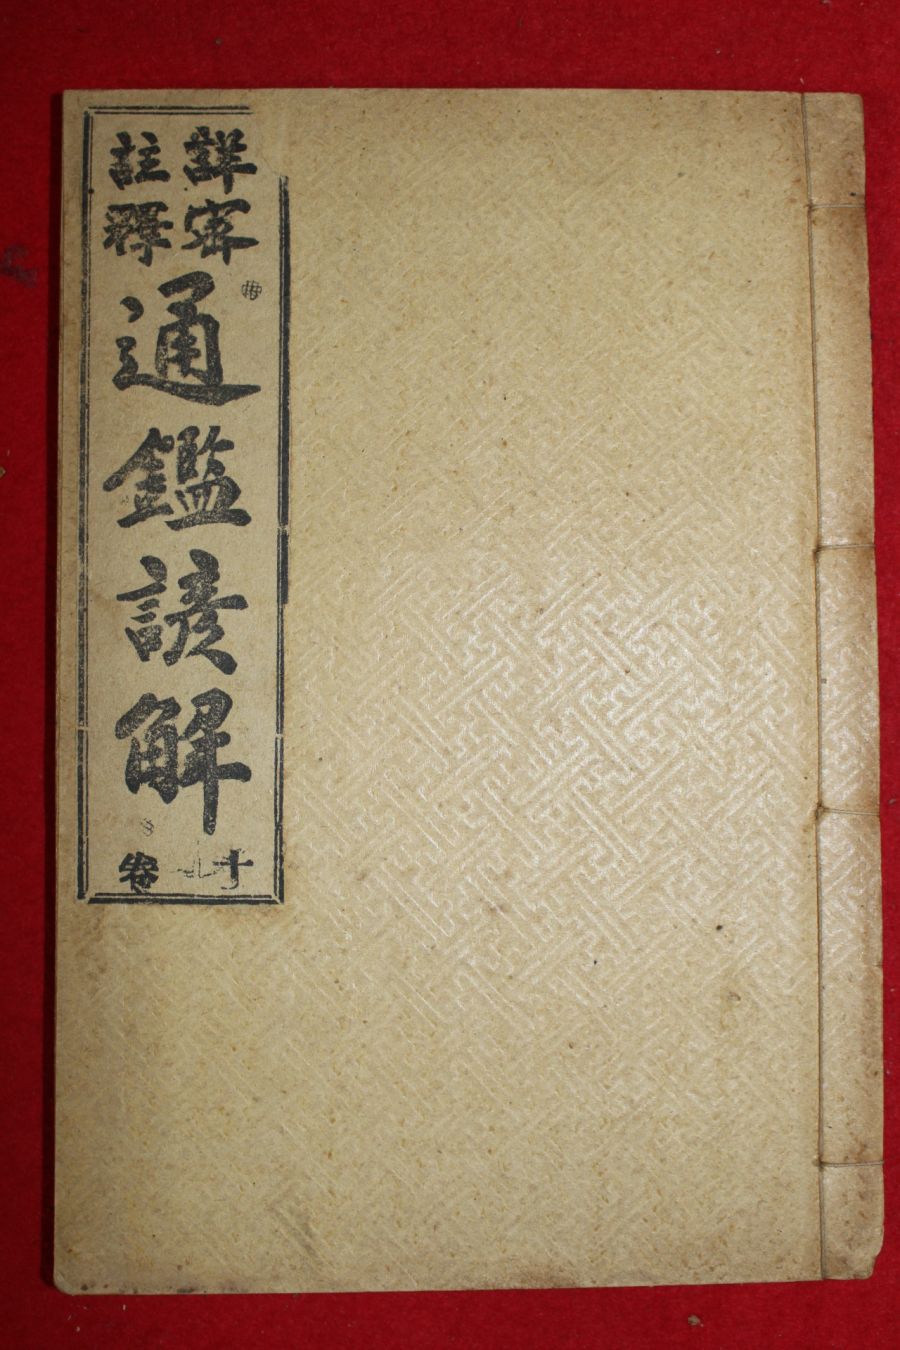 詳密
註釋
通鑑諺解
卷
十